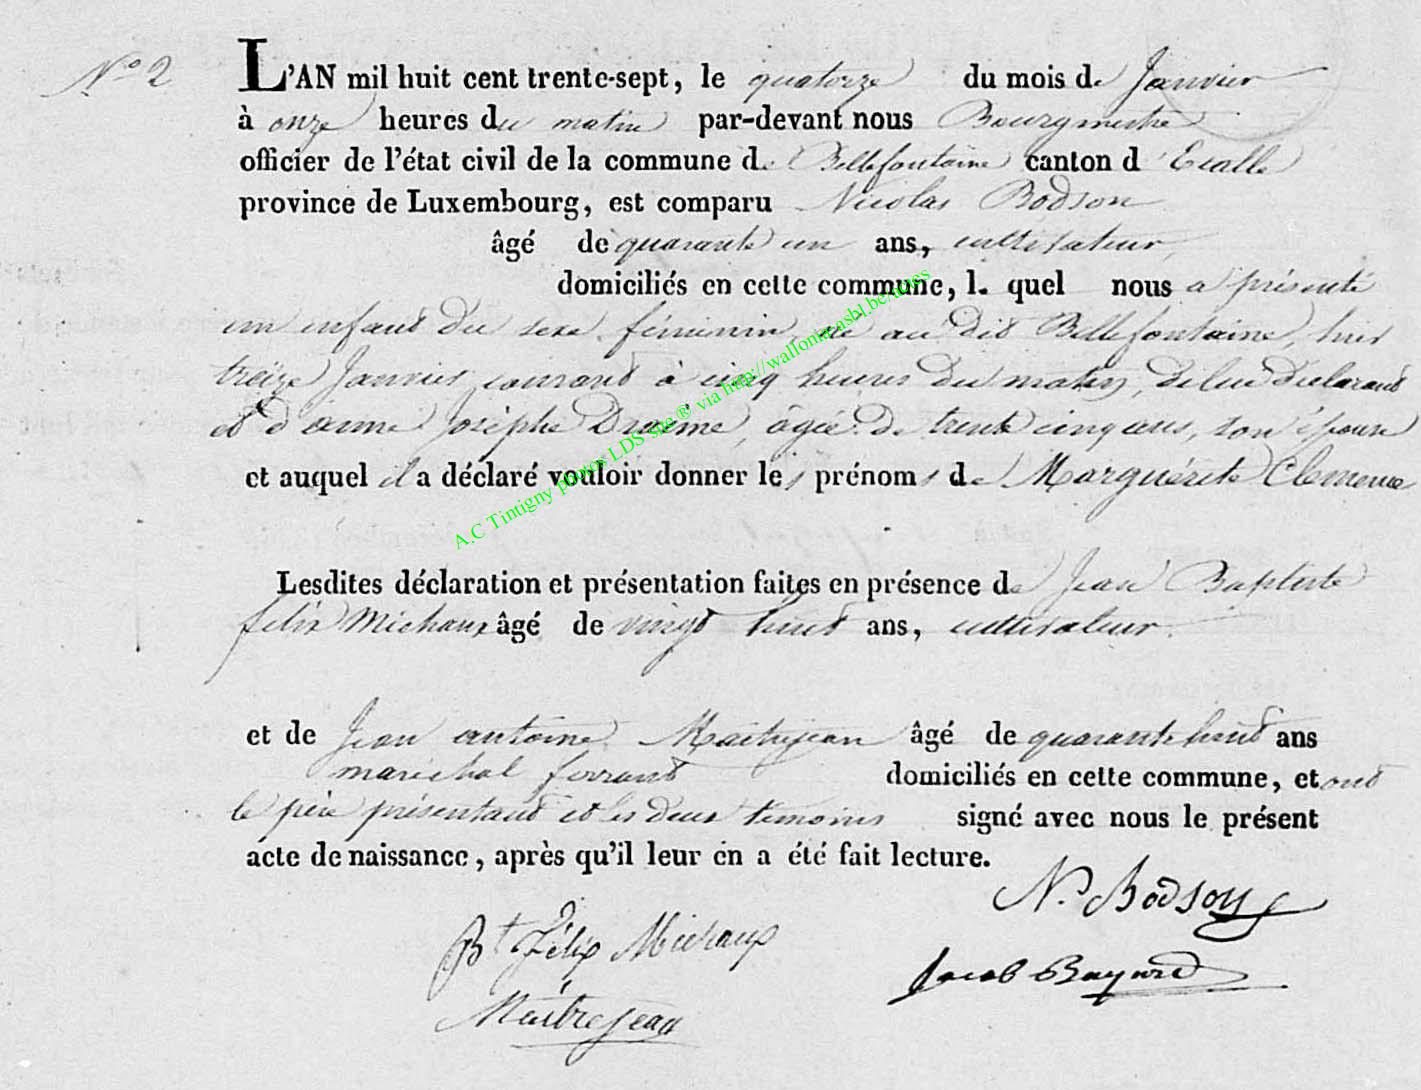 N.o 2
L'AN mil huit cent trente-sept, le quatorze du mois de Janvier
à onze heures du matin par-devant nous Bourgmestre
officier de l'état civil de la commune de Bellefontaine canton d' Etalle
province de Luxembourg, est comparu Nicolas Bodson
âgé de quarante un ans, cultivateur,
domiciliés en cette commune, l. quel nous a présenté
un enfant du sexe féminin, né au dit Bellefontaine, hier
treize Janvier courant à cinq heures du matin, de lui déclarant
et d'anne Josèphe âgée de trente cinq ans, son épouse
et auquel il a déclaré vouloir donner les prénoms de Marguérite Clemence
Lesdites déclaration et présentation faites en présence de Jean Baptiste
félix Michaux âgé de vingt huit ans, cultivateur.
et de Jean antoine Maitrejean âgé de quarante huit ans
maréchal ferrant domiciliés en cette commune, et ont
le père présentant et les deux témoins signé avec nous le présent
acte de naissance, après qu'il leur en a été fait lecture.
N. Bodson
Bt Félix Michaux
Jacob Bayard
Maitrejean
A.C Tintigny photos LDS site ® via http://wallonia-asbl.be/actes